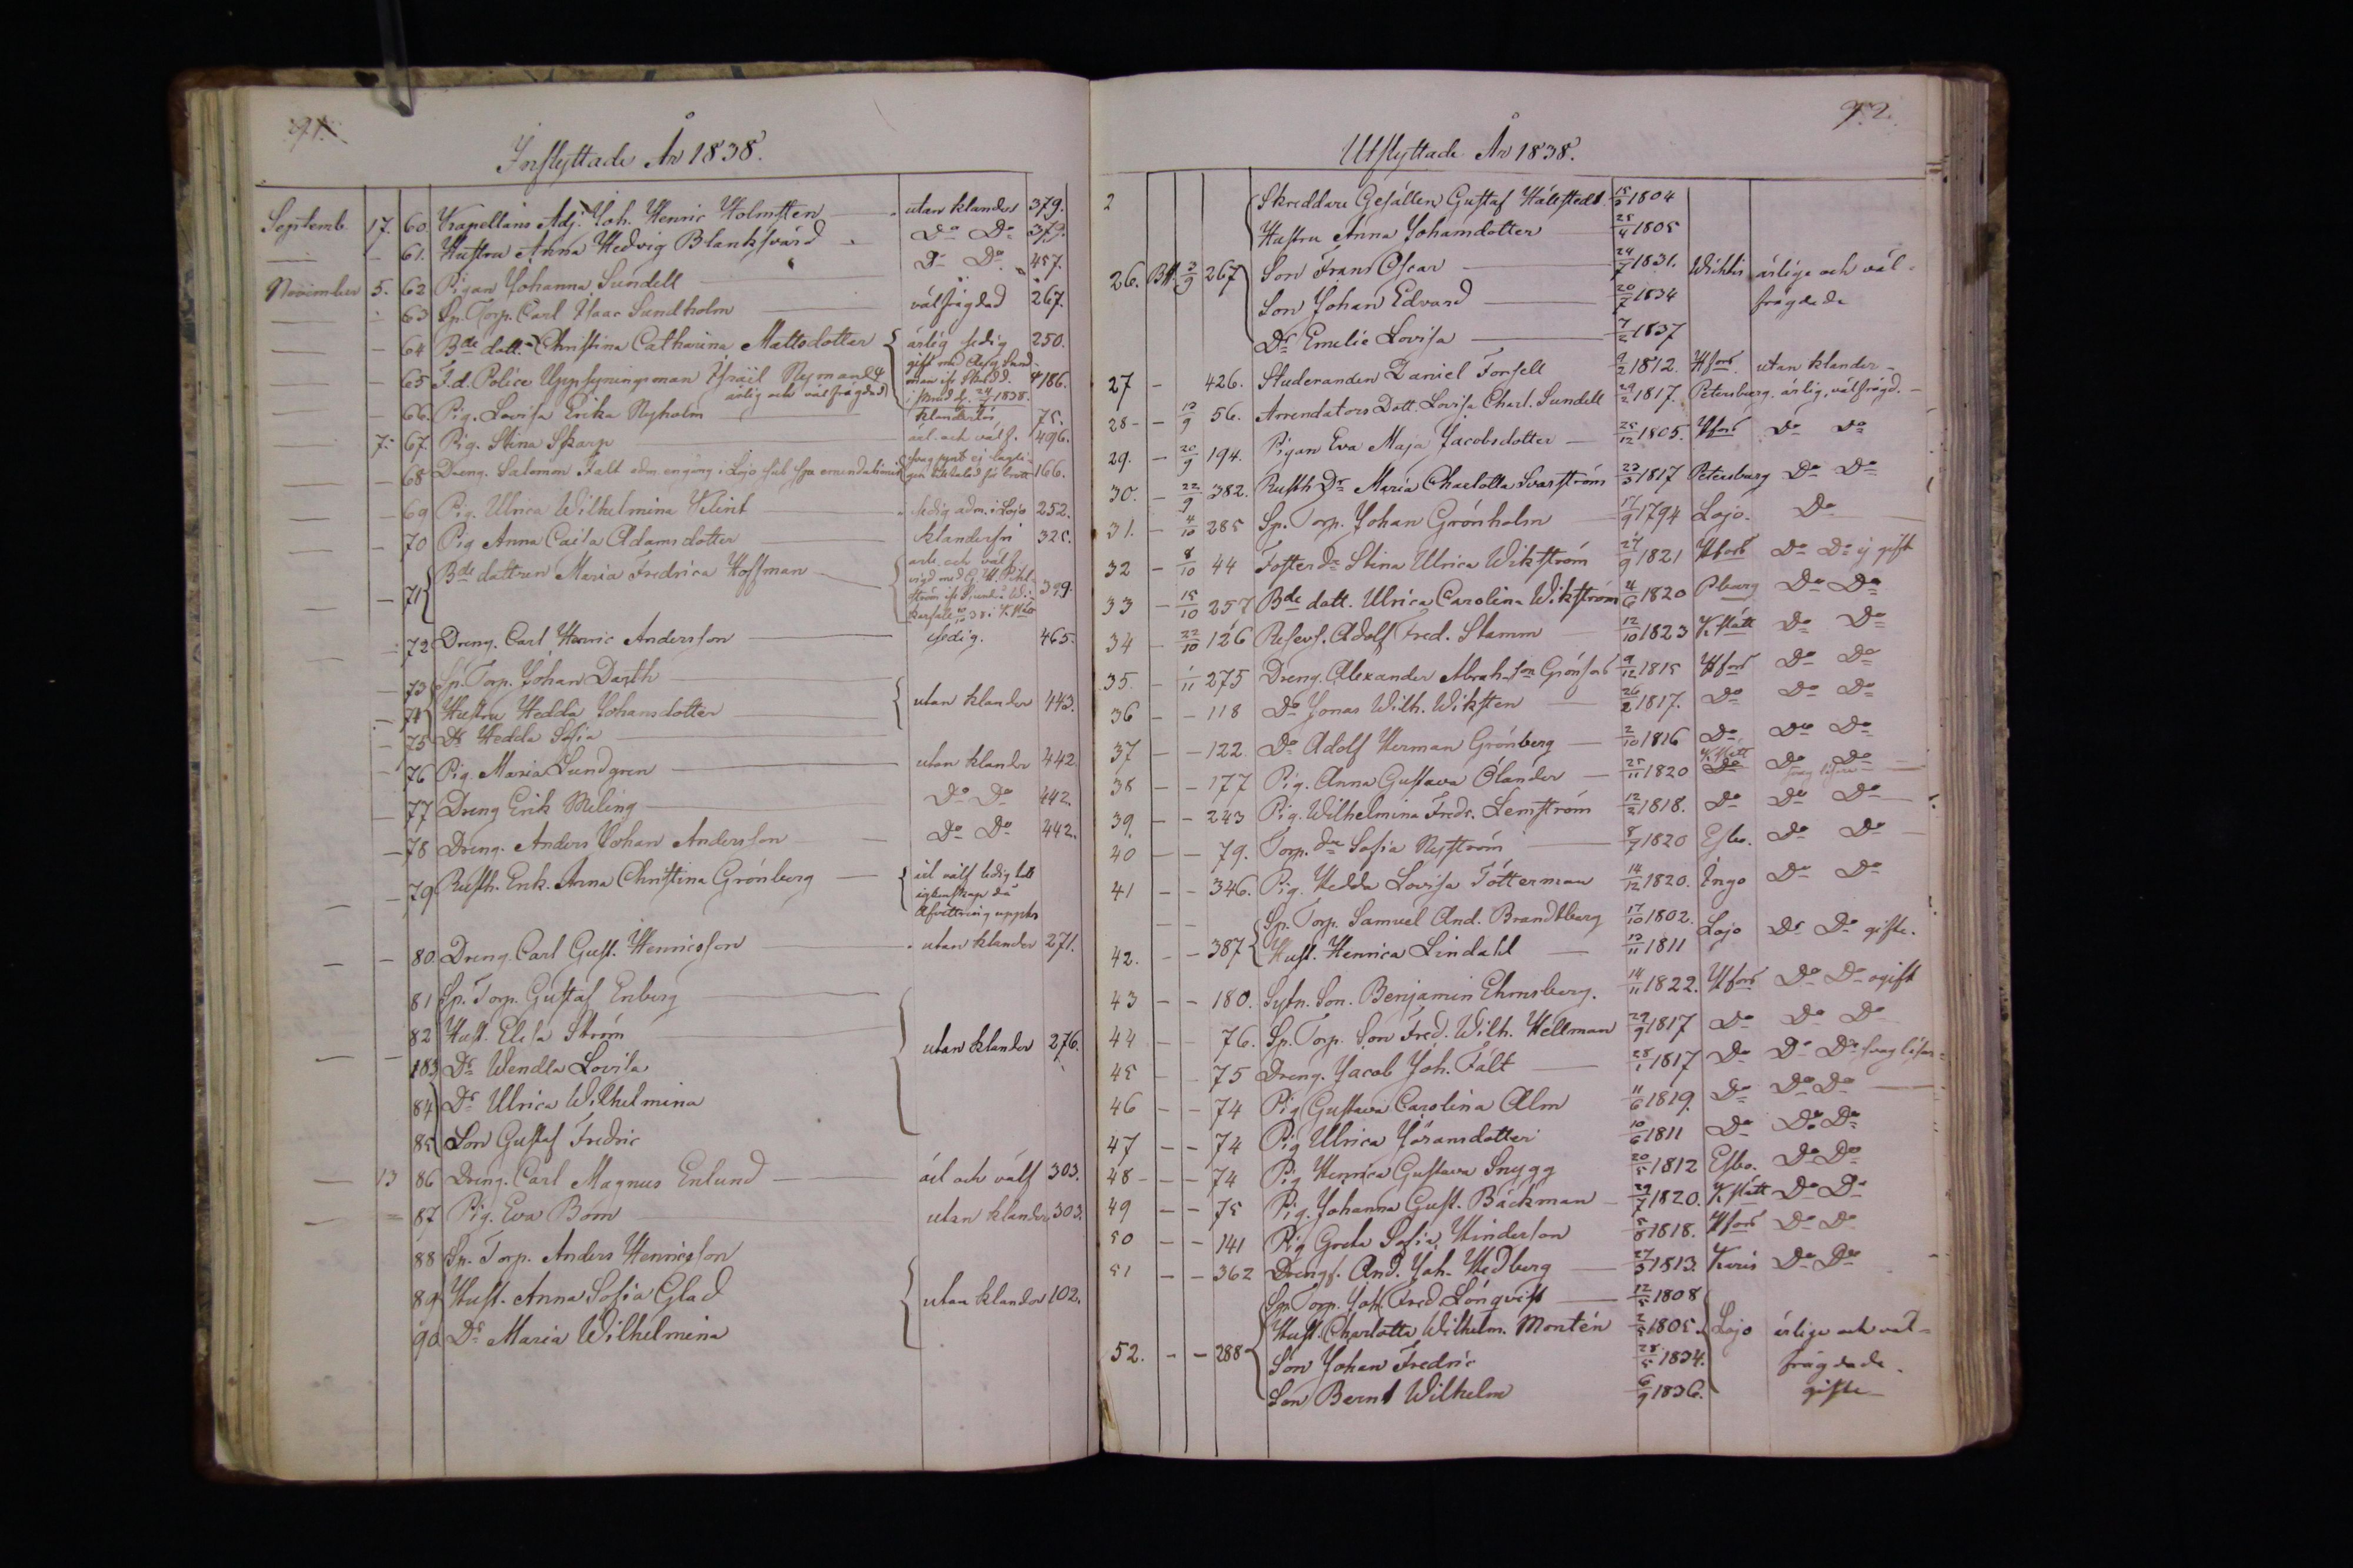 91.
Inflyttade År 1838.
Septemb. 17. 60. Kapellans Adj. Joh. Henric Holmsten utan klander 379.
— — 61. Hustru Anna Hedvig Blanksvärd Do Do 379.
November 5. 62 Pigan Johanna Sundell Do Do 457.
— 63 Sp. Torp. Carl Isaac Sundholm välfrägdad 267.
— — 64 Bde dott. Christina Catharina Mattsdotter ärlig ledig 250.
gift med
— — 65 F.d. Police Uppsyningsman Israel Nyman 186.
ärlig och välfrägdad
— — 66. Pig. Lovisa Erika Nyholm klanderlös 75.
— 7. 67. Pig. Stina Skarp ärl. och välf. 496.
— — 68 Dreng. Salomon Fält adm en gång i Lojo 166.
— — 69 Pig. Ulrica Wilhelmina Flint ledig adm. i Lojo 252.
— — 70 Pig Anna Caisa Adamsdotter klanderfri 325.
— — 71 Bde dottren Maria Fredrica Hoffman ärl. och välf. 399.
— — 72 Dreng. Carl Henric Andersson ledig. 465.
— — 73 Sp. Torp. Johan Darth
— — 74 Hustru Hedda Johansdotter utan klander 443.
— 75 Dr Hedda Sofia
— — 76 Pig. Maria Lundgren utan klander 442.
— 77 Dreng Erik Meling Do Do 442.
— 78 Dreng. Anders Johan Andersson Do Do 442.
— — 79 Rusth. Enk. Anna Christina Grönberg
— — 80. Dreng. Carl Gust. Henricsson utan klander 271.
81 Sp. Torp. Gustaf Enberg
82 Hust. Elisa Ström
— — 183 Dr Wendla Lovisa utan klander 276.
84 Dr Ulrica Wilhelmina
85 Son Gustaf Fredric
— 13 86 Dreng. Carl Magnus Enlund ärl och välf 303.
— = 87 Pig. Eva Bom utan klander 303.
88 Sp. Torp. Anders Henricsson
89 Hust. Anna Sofia Glad utan klander 102.
90 Dr Maria Wilhelmina
92.
Utflyttade År 1838.
2 Skreddare Gesällen Gustaf Hällstedt 1804
Hustru Anna Johansdotter 25/4 1805
26. 3/9 267 Son Frans Oscar 24/7 1831. Wichtis ärlige och väl-
Son Johan Edvard 20/7 1834 frägdade
Dr Emelie Lovisa 7/2 1837
27 — 426. Studeranden Daniel Forsell 9/2 1812. Hfors. utan klander
28 — 13/9 56. Arrendators Dott. Lovisa Charl. Sundell 29/2 1817. Petersburg. ärlig, välfrägd.
29. — 20/9 194. Pigan Eva Maja Jacobsdotter 25/12 1805. Hfors Do Do
30. — 22/9 382. Rusth Dr Maria Charlotta Svartström 23/3 1817 Petersburg Do Do
31. — 4/10 285 Sp. Torp. Johan Grönholm 1794 Lojo. Do
32 — 8/10 44 Foster dr Stina Ulrica Wikström 27/9 1821 Hfors Do Do ej gift
33 — 15/10 257 Bde dott. Ulrica Carolina Wikström 4/6 1820 Pburg Do Do
34 — 22/10 126 Adolf Fred. Stamm 12/10 1823 K.slätt Do Do
35 — 1/11 275 Dreng. Alexander Abrah.son Grönfors 9/12 1815 Hfors Do Do
36 — — 118 Do Jonas Wilh. Wiksten 26/2 1817. Do Do Do
37 — — 122 Do Adolf Herman Grönberg 2/10 1816 Do Do Do
38 — — 177 Pig. Anna Gustava Ölander 25/11 1820 K.slätt Do Do
39. — — 243 Pig. Wilhelmina Fredr. Lemström 12/2 1818. Do Do Do
40 — — 79. Torp. dr Sofia Nyström 8/7 1820 Esbo. Do Do
41 — — 346. Pig. Hedda Lovisa Tötterman 14/12 1820. Ingo Do Do
— — Sp. Torp. Samuel And. Brandtberg 17/10 1802.
42. — — 387 Hust. Henrica Lindahl 13/11 1811 Lojo Do Do gifte.
43 — — 180. Sytn. Son. Benjamin Ehrnsberg. 14/11 1822. Hfors Do Do ogift
44 — — 76. Sp. Torp. Son Fred. Wilh. Hellman 29/9 1817 Do Do Do
45 — — 75 Dreng. Jacob Joh. Fält 28/1 1817 Do Do Do svag läsare
46 — — 74 Pig Gustava Carolina Alm 11/6 1819. Do Do Do
47 — — 74 Pig Ulrica Jöransdotter 10/6 1811 Do Do Do
48 — — 74 Pig Henrica Gustava Snygg 20/5 1812 Esbo. Do Do
49 — — 75 Pig. Johanna Gust. Bäckman 29/7 1820. K.slätt Do Do
50 — — 141 Pig Greta Sofia Hinderson 5/8 1818. Hfors Do Do
51 — — 362 Drengs. And. Joh. Hedberg 27/3 1813. Karis Do Do
Sp. Torp. Joh. Fred. Lönqvist 12/5 1808
Hust. Charlotta Wilhelm. Montén 2/5 1805. Lojo ärlige och väl-
52. — — 288 Son Johan Fredric 28/5 1834. frägdade.
Son Bernt Wilhelm 6/9 1836. gifte